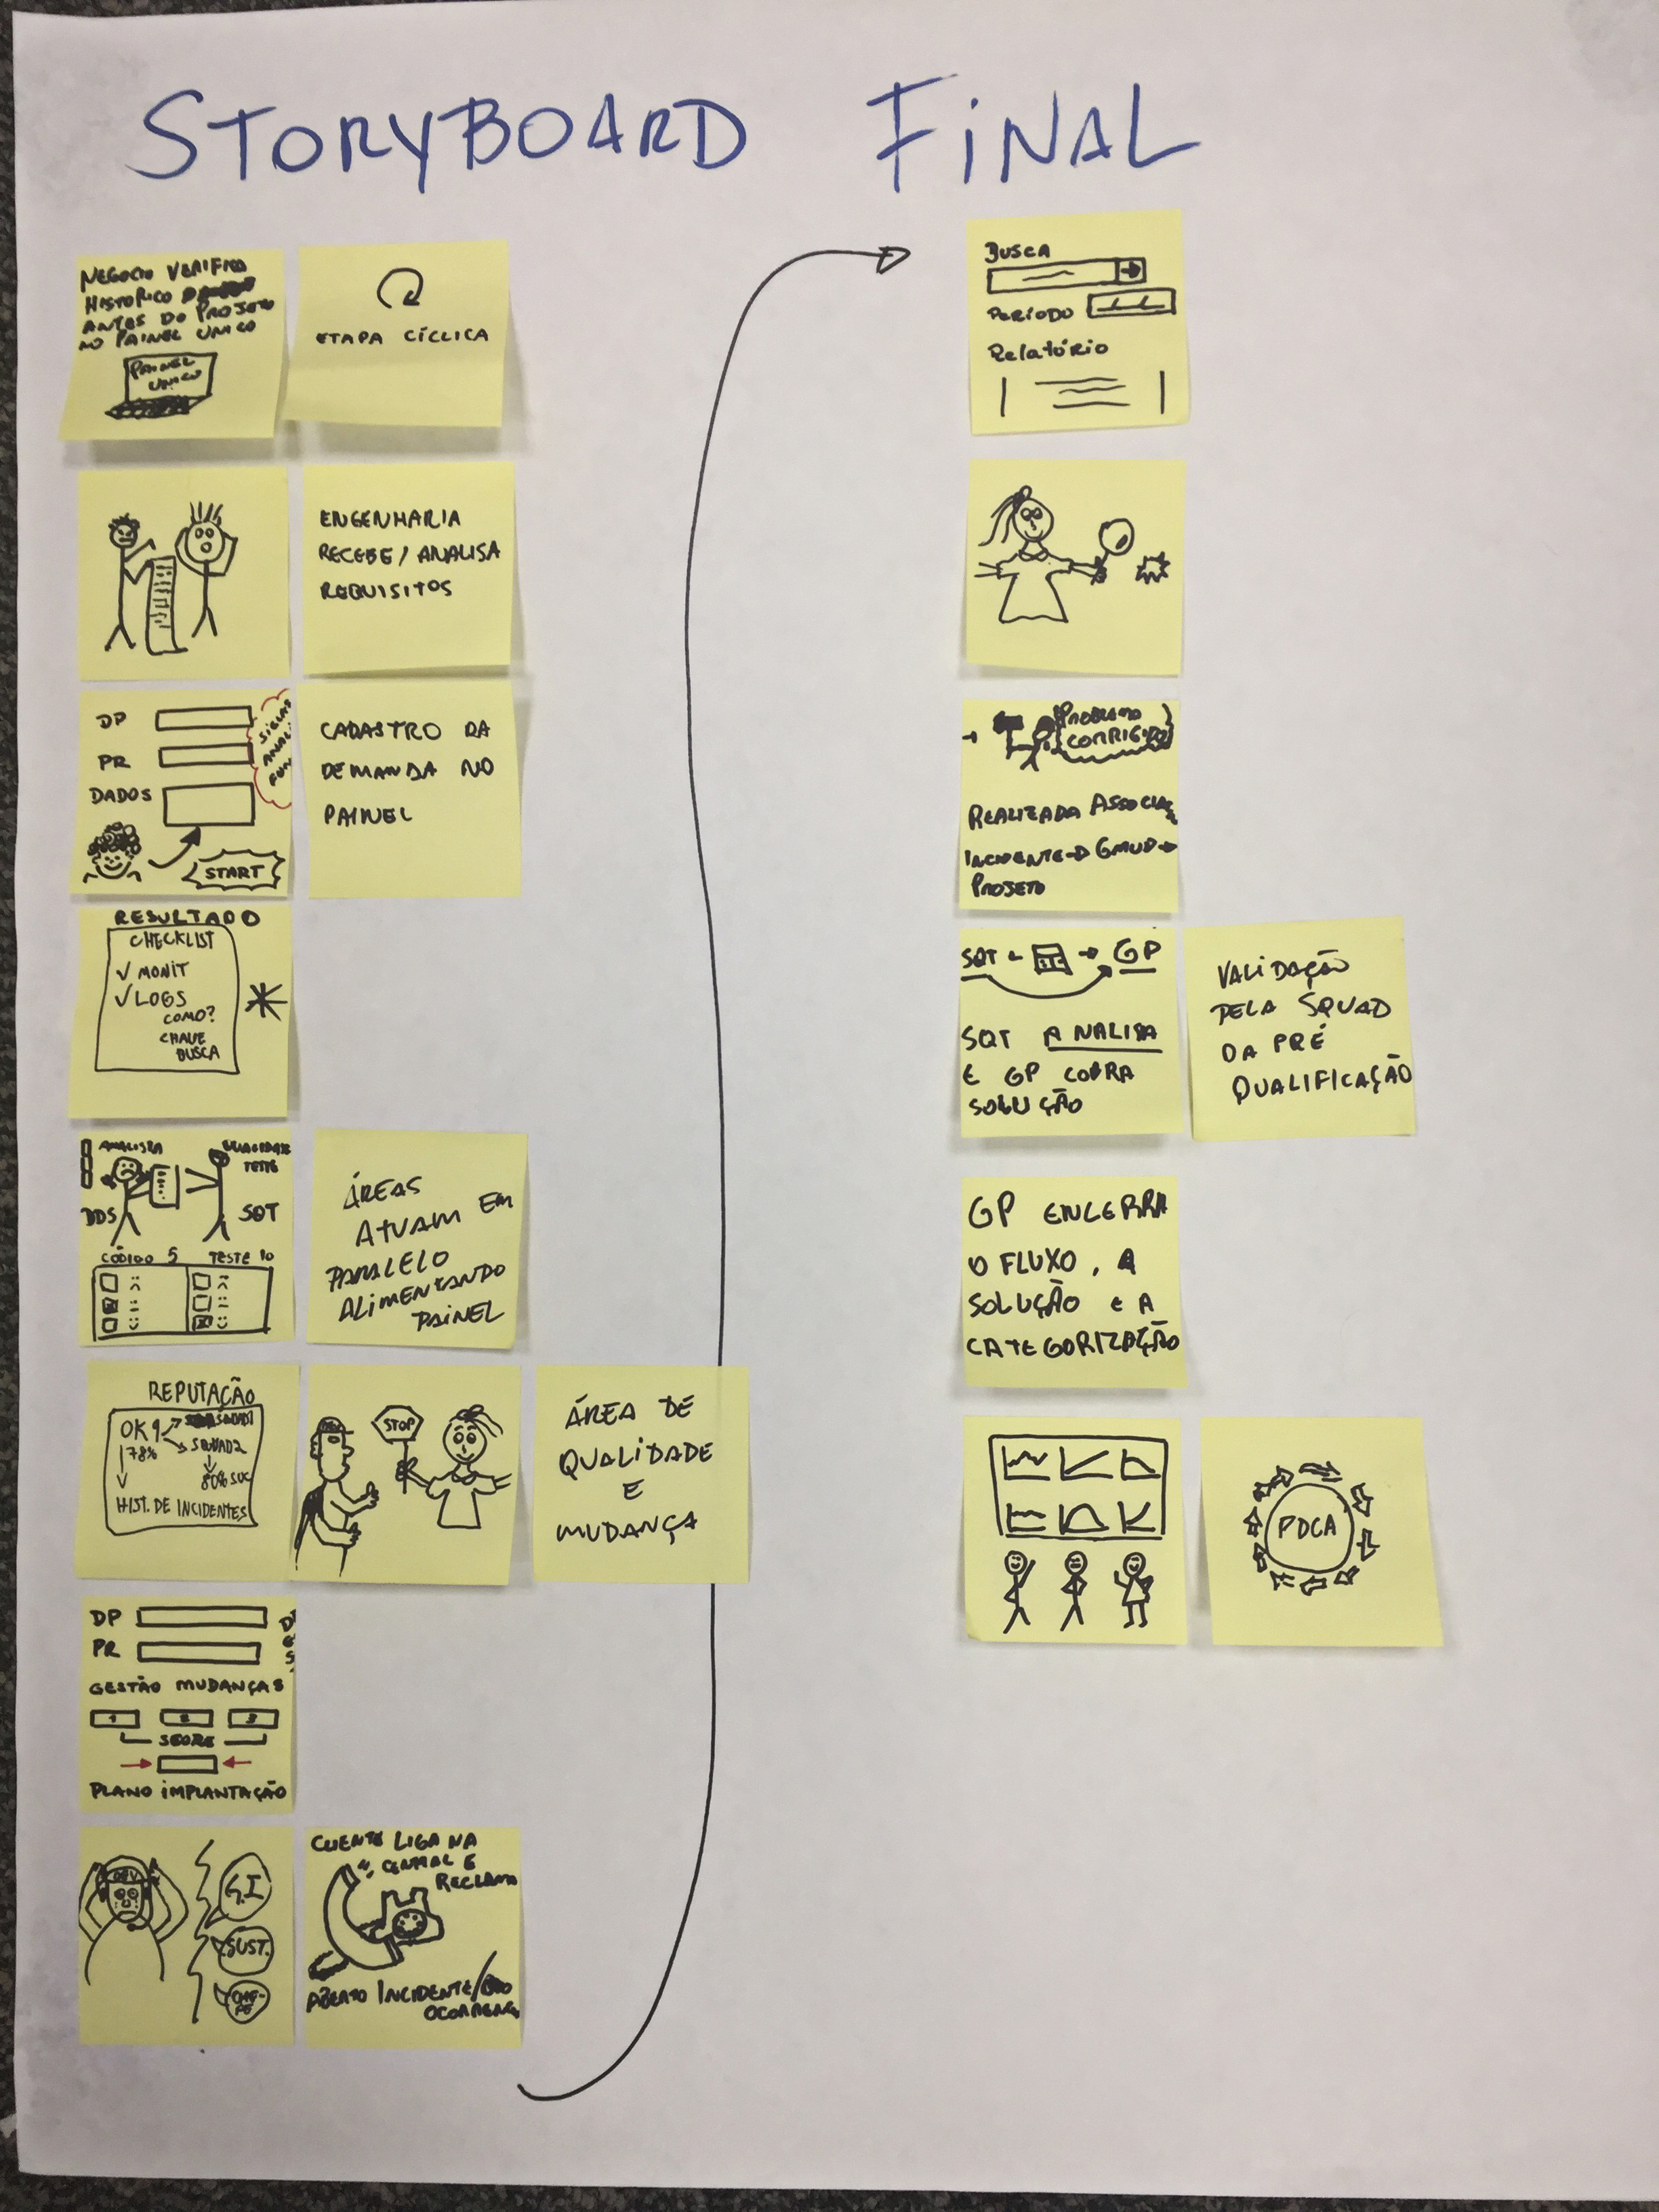 STORYBOARD FINAL
NEGOCIO VERIFICA
HISTORICO
ANTES DO PROJETO
NO PAINEL UNICO
PAINEL
UNICO
ETAPA CÍCLICA
ENGENHARIA
RECEBE/ANALISA
REQUISITOS
DP
PR
DADOS
START
CADASTRO DA
DEMANDA NO
PAINEL
RESULTADO
CHECKLIST
✓ MONIT
✓ LOGS
COMO?
CHAVE
BUSCA
ANALISTA
QUALIDADE
TESTE
DDS
SQT
CÓDIGO 5 TESTE 10
ÁREAS
ATUAM EM
PARALELO
ALIMENTANDO
PAINEL
REPUTAÇÃO
OK 9 → SQUAD1
78% SQUAD2
80% SUC
HIST. DE INCIDENTES
STOP
ÁREA DE
QUALIDADE
E
MUDANÇA
DP
PR
GESTÃO MUDANÇAS
1 2 3
SCORE
PLANO IMPLANTAÇÃO
G.I
SUST.
CLIENTE LIGA NA
CENTRAL E
RECLAMA
ABERTO INCIDENTE/
OCORRENC
BUSCA
PERÍODO
Relatório
PROBLEMA
CORRIGIDO
REALIZADA ASSOCIAÇ
INCIDENTE → GMUD →
PROJETO
SQT GP
SQT ANALISA
E GP COBRA
SOLUÇÃO
VALIDAÇÃO
PELA SQUAD
DA PRÉ
QUALIFICAÇÃO
GP ENCERRA
O FLUXO, A
SOLUÇÃO E A
CATEGORIZAÇÃO
PDCA